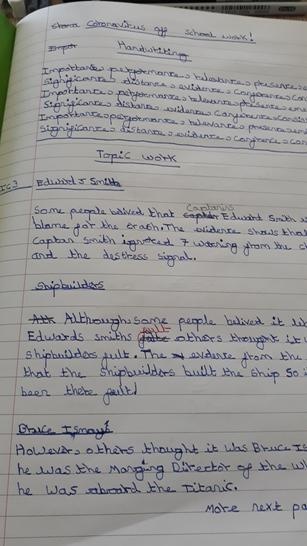 Coronavirus off school work!
Handwriting
Importance, performance, relevance, presence,
Significance, distance, evidence, Conference, Con
Importance, performance, relevance, presence,
Significance, distance, evidence, Conference, Consist
Importance, performance, relevance, presence,
Significance, distance, evidence, Conference, Con
Topic work
Edward J Smith
Captain
Some people belived that Edward Smith
blame for the crash. The evidence shows that
Captain Smith ignored 7 warning from the
and the destress signal.
Shipbuilders
Although some people belived it
fault
Edwards smiths others thought it
Shipbuilders fult. The evidense from the
that the shipbuilders built the ship so
been there fault
Bruce Ismay
However, others thought it was Bruce Is
he was the Manging Director of the
he was abroard the Titanic.
More next pa